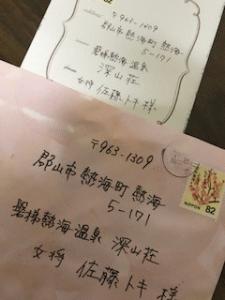 〒963-1309
郡山市熱海町熱海
5-171
磐梯熱海温泉
深山荘
女将 佐藤トキ様
〒963-1309
郡山市熱海町熱海
5-171
磐梯熱海温泉 深山荘
女将 佐藤トキ様
NIPPON
82